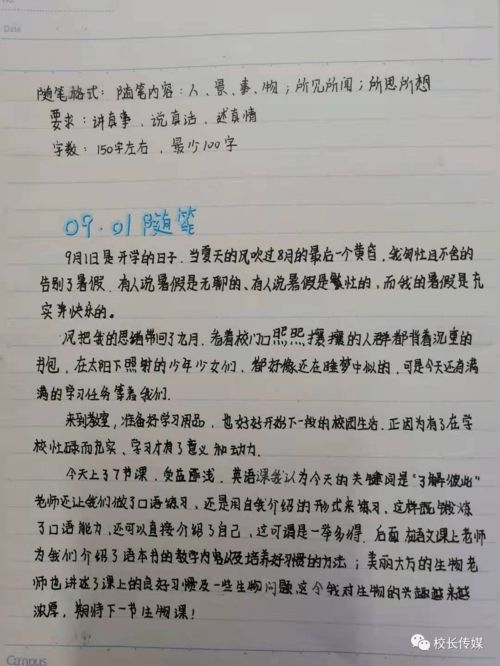 No.
Date
随笔格式：随笔内容：人、景、事、物；所见所闻；所思所想
要求：讲真事、说真话、述真情
字数：150字左右，最少100字
09.01随笔
9月1日是开学的日子，当夏天的风吹过8月的最后一个黄昏，我匆忙且不舍的
告别了暑假。有人说暑假是无聊的、有人说暑假是繁忙的，而我的暑假是充
实并快乐的。
风把我的思绪带回了九月，看着校门口熙熙攘攘的人群都背着沉重的
书包，在太阳下照射的少年少女们，都好像还在睡梦中似的，可是今天还有满
满的学习任务等着我们。
来到教室，准备好学习用品，也好好开始下一段的校园生活。正因为有了在学
校忙碌而充实、学习才有了意义和动力。
今天上了7节课，受益匪浅。英语课我认为今天的关键词是“了解彼此”
老师还让我们做了口语练习，还是用自我介绍的形式来练习，这样既锻炼
了口语能力，还可以直接介绍了自己，这可谓是一举多得。后面在语文课上老师
为我们介绍了语文书的教学内容以及培养好习惯的方法；美丽大方的生物老
师也讲述了课上的良好习惯及一些生物问题，这令我对生物的兴趣越来越
浓厚，期待下一节生物课！
Campus
校长传媒